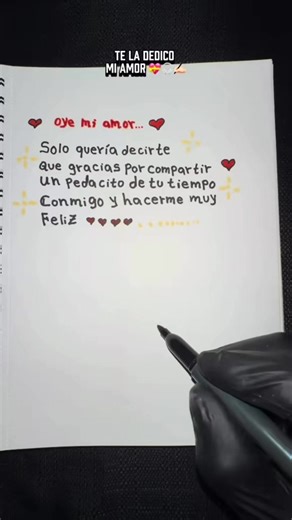 TE LA DEDICO
MI AMOR
oye mi amor...
Solo quería decirte
Que gracias por compartir
Un pedacito de tu tiempo
Conmigo y hacerme muy
Feliz